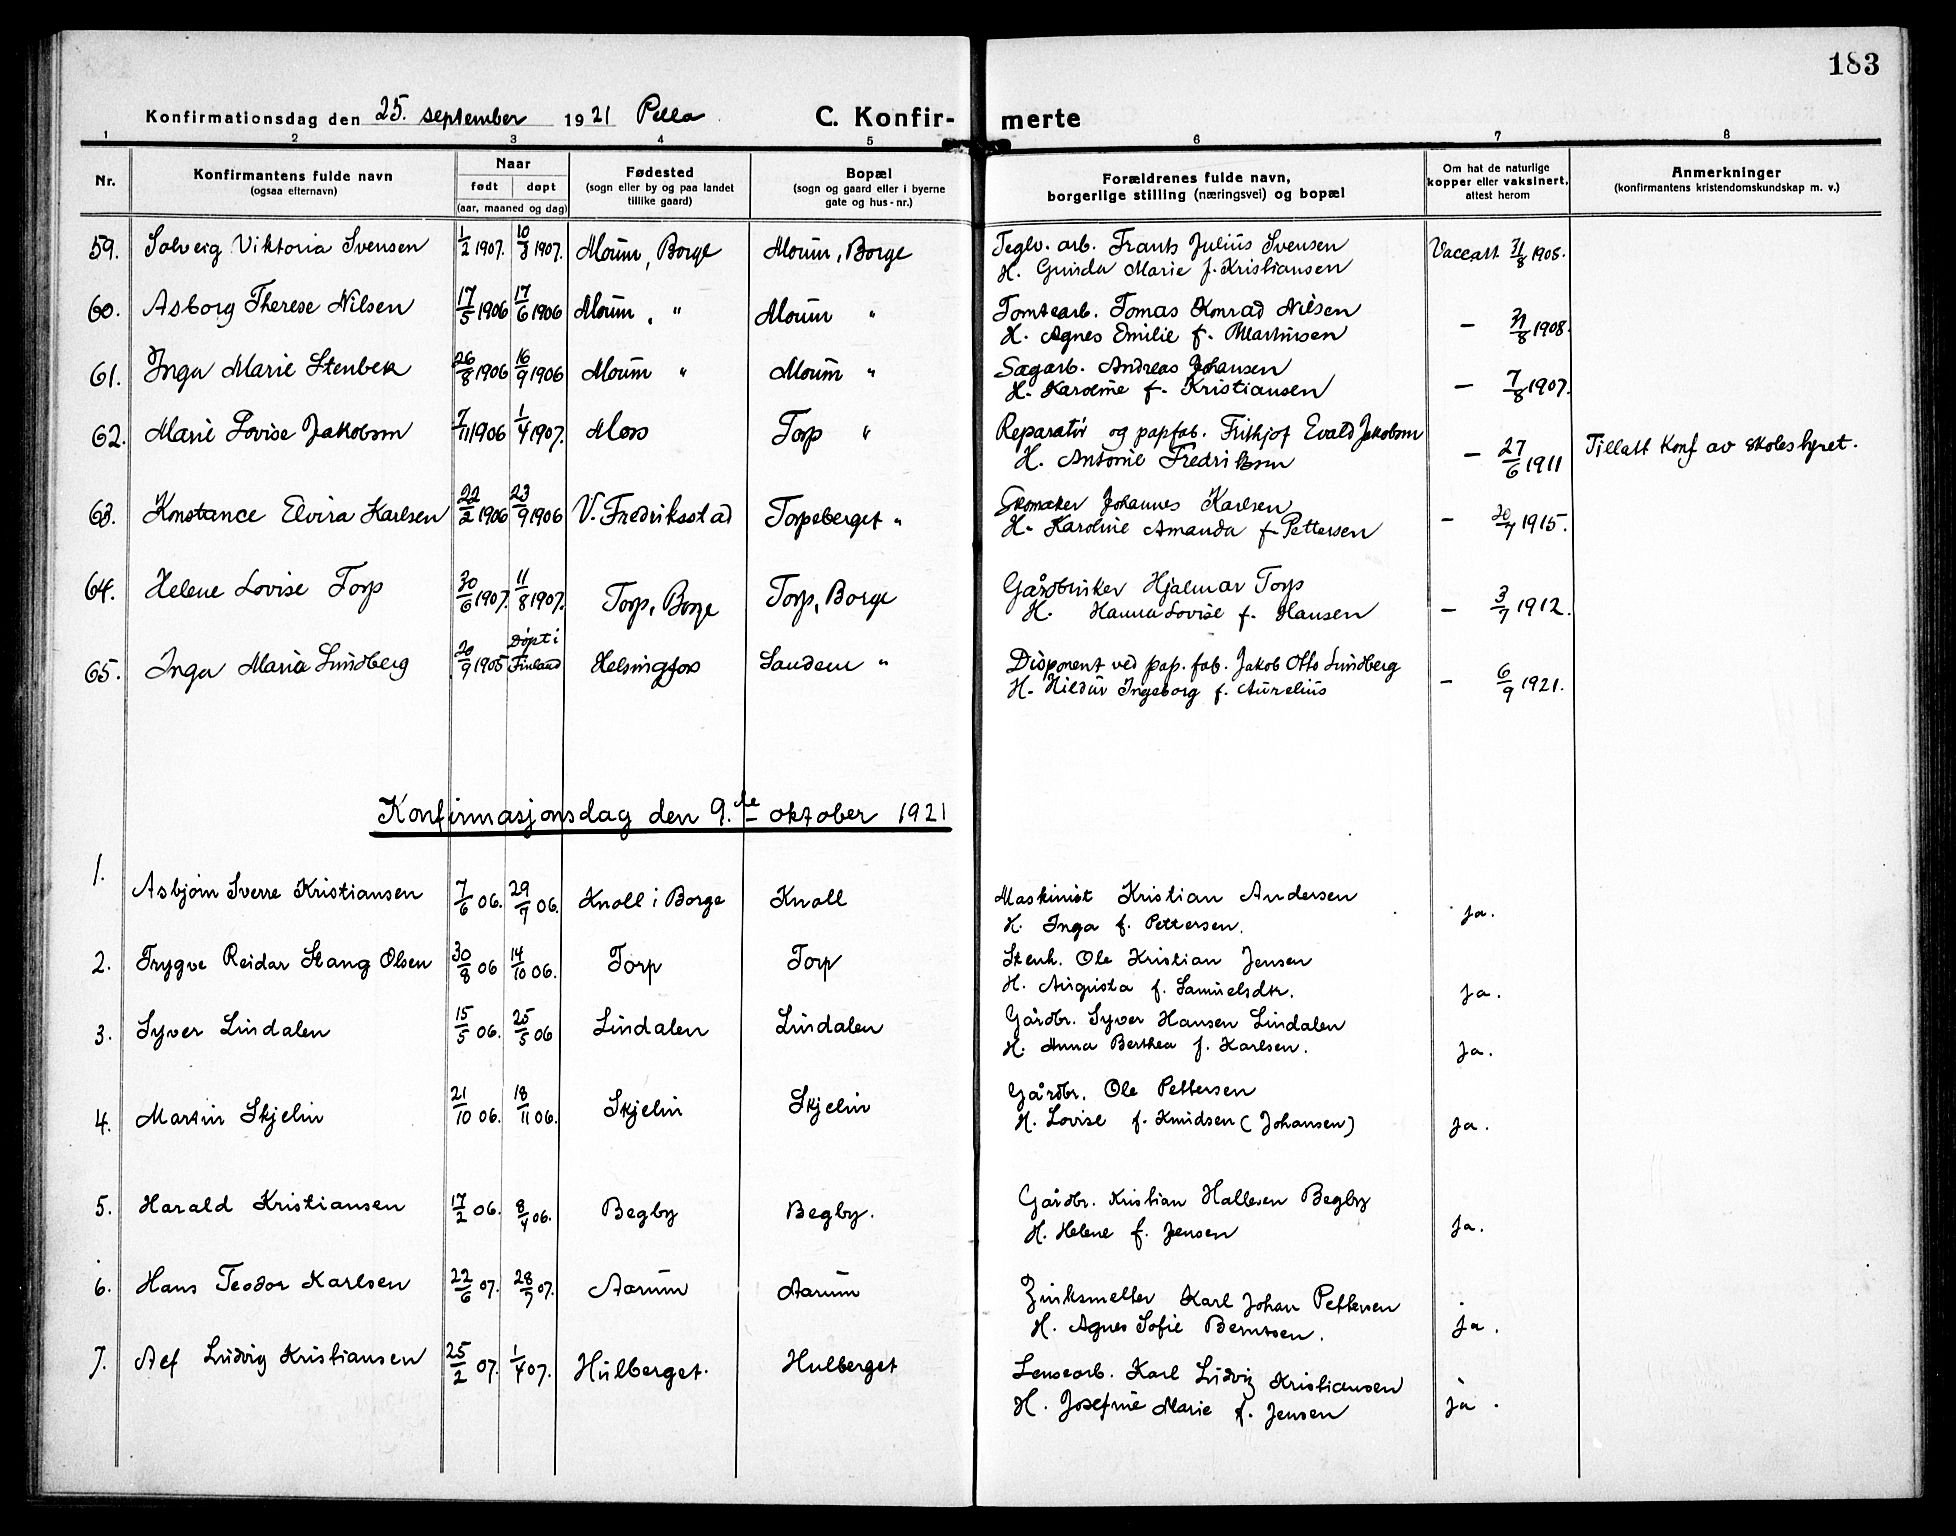 183
Konfirmationsdag den 25. september 1921 Pella
C. Konfirmerte
1 2 3 4 5 6 7 8
Nr. Konfirmantens fulde navn (ogsaa efternavn) Naar født døpt (aar, maaned og dag) Fødested (sogn eller by og paa landet tillike gaard) Bopæl (sogn og gaard eller i byerne gate og hus-nr.) Forældrenes fulde navn, borgerlige stilling (næringsvei) og bopæl Om hat de naturlige kopper eller vaksinert, attest herom Anmerkninger (konfirmantens kristendomskundskap m. v.)
59. Solveig Viktoria Svensen 1/2 1907. 10/3 1907. Moum, Borge Moum, Borge Teglv. arb. Frants Julius Svensen Vacc att 31/8 1908.
H. Gunda Marie f. Kristiansen
60. Asborg Therese Nilsen 17/5 1906 17/6 1906 Moum, " Moum " Tomtearb. Tomas Konrad Nilsen
H. Agnes Emilie f. Martinsen — 31/8 1908.
61. Inga Marie Stenbek 26/8 1906 16/9 1906 Moum " Moum " Sagarb. Andreas Johansen
H. Karoline f. Kristiansen — 7/8 1907.
62. Marie Lovise Jakobsen 7/11 1906 1/4 1907. Moss Torp " Reparatør og papfab. Fritkjof Evald Jakobsen
H. Antonie Fredriksen — 27/6 1911 Tillatt Konf av skolestyret.
63. Konstance Elvira Karlsen 22/2 1906 23/9 1906 V. Fredriksstad Torpeberget " Skomaker Johannes Karlsen
H. Karoline Amanda f Pettersen — 20/7 1915.
64. Helene Lovise Torp 30/6 1907. 11/8 1907. Torp, Borge Torp, Borge Gårdbruker Hjalmar Torp
H. Hanna Lovise f. Hansen — 3/7 1912.
65. Inga Maria Lundberg 20/9 1905 Døpt i Finland Helsingfors Sandem " Disponent ved pap. fab. Jakob Otto Lundberg
H. Hildur Ingeborg f. Aurelius — 6/9 1921.
Konfirmasjonsdag den 9.de oktober 1921
1. Asbjørn Sverre Kristiansen 7/6 06. 29/7 06. Knoll i Borge Knoll Maskinist Kristian Andersen
H. Inga f. Pettersen. ja.
2. Trygve Reidar Stang Olsen 30/8 06 14/10 06. Torp Torp Stenh. Ole Kristian Jensen
H. Augusta f. Samuelsdtr. ja.
3. Syver Lindalen 15/5 06. 25/5 06 Lindalen Lindalen Gårdbr. Syver Hansen Lindalen
H. Anna Berthea f. Karlsen. ja.
4. Martin Skjelin 21/10 06. 18/11 06. Skjelin Skjelin Gårdbr. Ole Pettersen
H. Lovise f. Knudsen (Johansen) ja.
5. Harald Kristiansen 17/2 06. 8/4 06. Begby Begby. Gårdbr. Kristian Hallesen Begby
H. Helene f. Jensen ja.
6. Hans Teodor Karlsen 22/6 07. 28/7 07. Aarum Aarum Zinksmelter Karl Johan Pettersen
H. Agnes Sofie Berntsen. ja.
7. Alf Ludvig Kristiansen 25/2 07. 1/4 07. Hulberget. Hulberget Lensearb. Karl Ludvig Kristiansen
H. Josefine Marie f. Jensen ja.